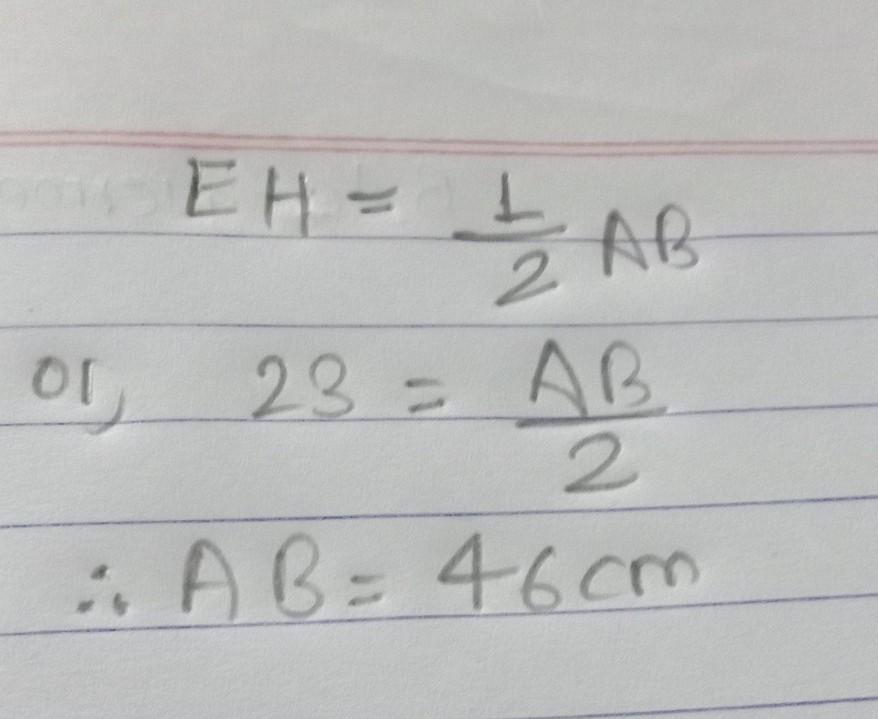 EH = 1/2 AB
or, 23 = AB/2
∴ AB = 46 cm